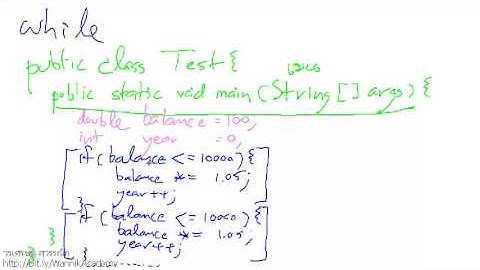 while
public class Test {
public static void main (String [] args) {
double balance = 100;
int year = 0;
if (balance <= 10000) {
balance *= 1.05;
year++;
if (balance <= 10000) {
balance *= 1.05;
year++;
}
}
}
http://bit.ly/WannikAcademy